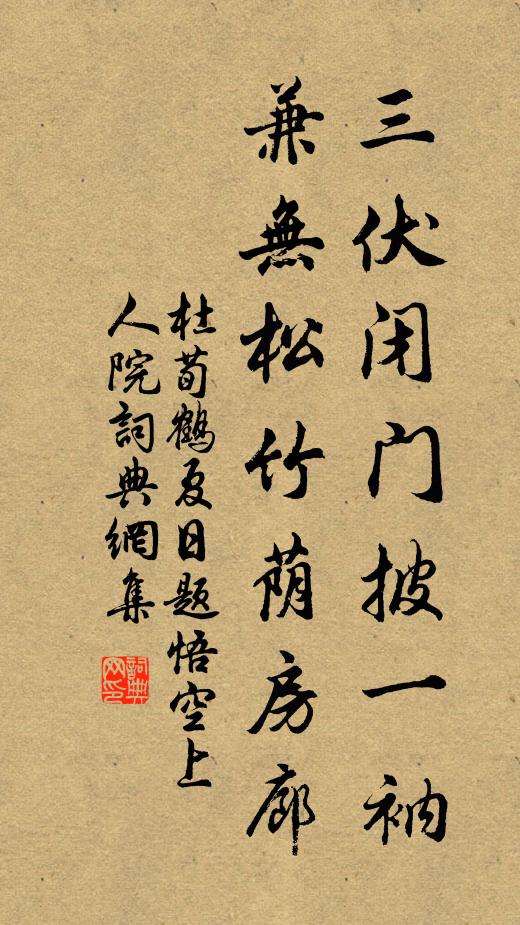 三伏闭门披一衲
兼無松竹荫房廊
杜荀鶴夏日题悟空上
人院詞典網集
詞典網印